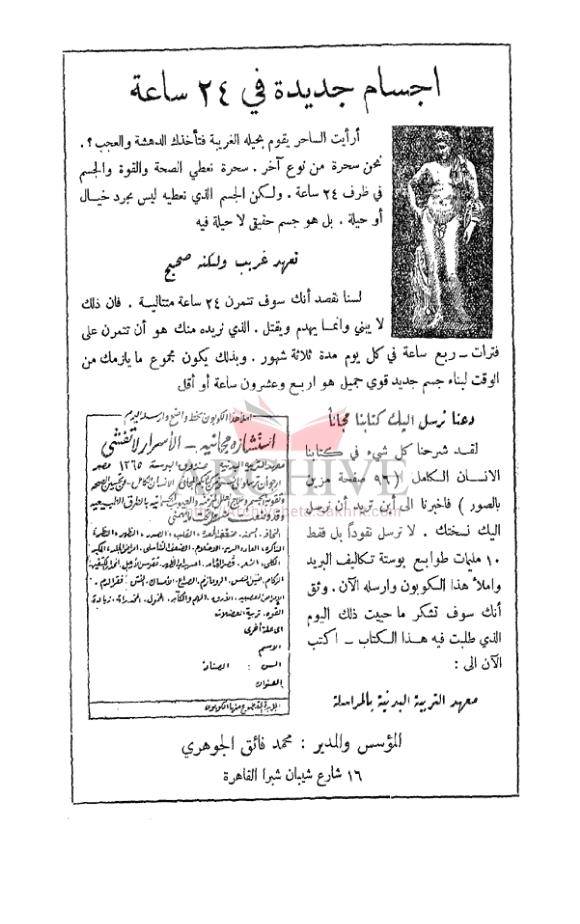 اجسام جديدة في ٢٤ ساعة
أرأيت الساحر يقوم بحيله الغريبة فتأخذك الدهشة والعجب ؟ .
نحن سحرة من نوع آخر . سحرة نعطي الصحة والقوة والجسم
في ظرف ٢٤ ساعة . ولكن الجسم الذي نعطيه ليس مجرد خيال
أو حيلة . بل هو جسم حقيقى لا حيلة فيه
تعهد غريب ولكنه صحيح
لسنا نقصد أنك سوف تتمرن ٢٤ ساعة متتالية . فان ذلك
لا يبني وانما يهدم ويقتل . الذي نريده منك هو أن تتمرن على
فترات – ربع ساعة في كل يوم مدة ثلاثة شهور . وبذلك يكون مجموع ما يلزمك من
الوقت لبناء جسم جديد قوي جميل هو اربع وعشرون ساعة أو أقل
دعنا نرسل اليك كتابنا مجاناً
لقد شرحنا كل شيء في كتابنا
الانسان الكامل ( ٩٦ صفحة مزين
بالصور ) فاخبرنا الى أين تريد أن نرسل
اليك نسختك . لا ترسل نقوداً بل فقط
١٠ مليمات طوابع بوستة تكاليف البريد
واملأ هذا الكوبون وارسله الآن . وثق
أنك سوف تشكر ما حييت ذلك اليوم
الذي طلبت فيه هذا الكتاب – اكتب
الآن الى :
معهد التربية البدنية بالمراسلة
املأ هذا الكوبون بخط واضح وارسله اليوم
استشارة مجانية – الأسرار لا تفشى
معهد التربية البدنية صندوق البوستة ١٢٦٥ مصر
القوة . تربية العضلات
اى علة أخرى
الاسم
السن : الصناعة
العنوان
المؤسس والمدير : محمد فائق الجوهري
١٦ شارع شيبان شبرا القاهرة
ARCHIVE